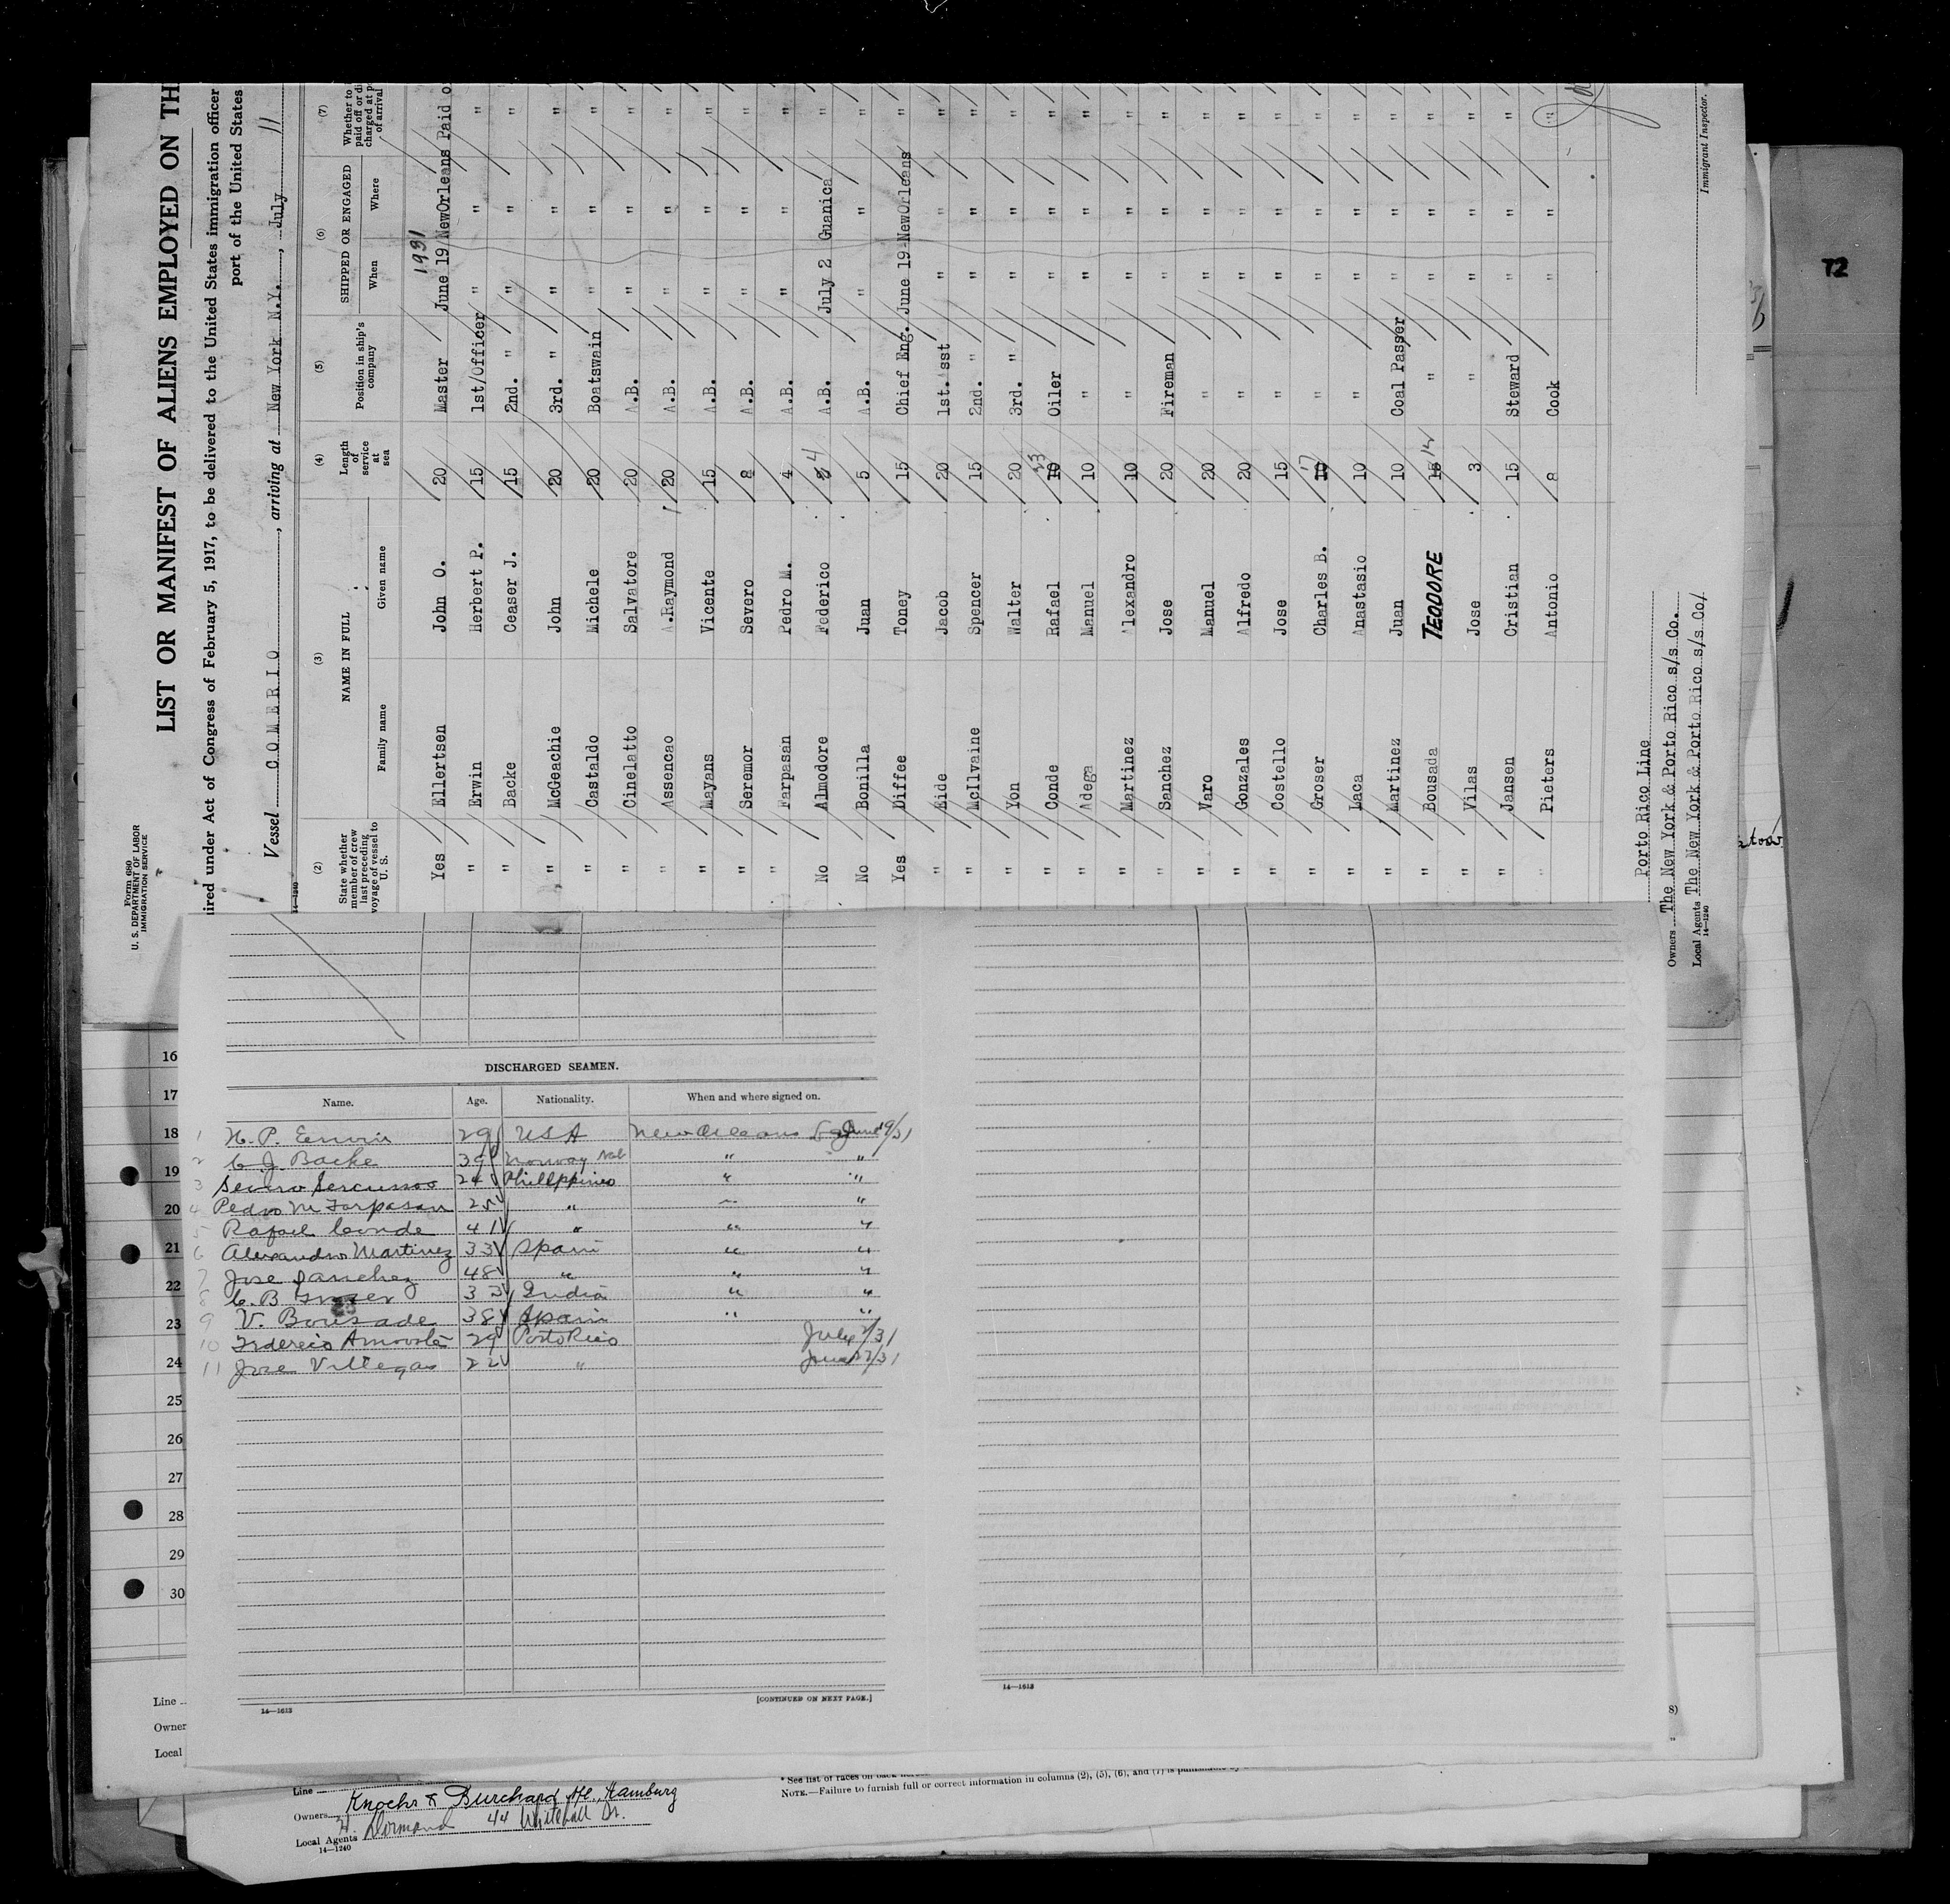 72
Form 680
U. S. DEPARTMENT OF LABOR
IMMIGRATION SERVICE
LIST OR MANIFEST OF ALIENS EMPLOYED ON TH
ired under Act of Congress of February 5, 1917, to be delivered to the United States immigration officer
port of the United States
Vessel COMERIO, arriving at New York N.Y., July 11
14—1240
(2) (3) (4) (5) (6) (7)
State whether member of crew last preceding voyage of vessel to U. S.
NAME IN FULL
Family name Given name
Length of service at sea
Position in ship's company
SHIPPED OR ENGAGED
When Where
Whether to paid off or di charged at p of arrival
1931
Yes Ellertsen John O. 20 Master June 19 NewOrleans Paid o
" Erwin Herbert P. 15 1st/Officer " " "
" Backe Ceaser J. 15 2nd. " " " "
" McGeachie John 20 3rd. " " " "
" Castaldo Michele 20 Boatswain " " "
" Cinelatto Salvatore 20 A.B. " " "
" Assencao A.Raymond 20 A.B. " " "
" Mayans Vicente 15 A.B. " " "
" Seremor Severo 8 A.B. " " "
" Farpasan Pedro M. 4 A.B. " " "
No Almodore Federico 4 A.B. July 2 Guanica "
No Bonilla Juan 5 A.B. " " "
Yes Diffee Toney 15 Chief Eng. June 19 NewOrleans "
" Eide Jacob 20 1st. Asst " " "
" McIlvaine Spencer 15 2nd. " " " "
" Yon Walter 20 3rd. " " " "
" Conde Rafael 10 23 Oiler " " "
" Adega Manuel 10 " " " "
" Martinez Alexandro 10 " " " "
" Sanchez Jose 20 Fireman " " "
" Varo Manuel 20 " " " "
" Gonzales Alfredo 20 " " " "
" Costello Jose 15 " " " "
" Groser Charles B. 10 17 " " " "
" Laca Anastasio 10 " " " "
" Martinez Juan 10 Coal Passer " " "
" Bousada TEODORE 12 " " " "
" Vilas Jose 3 " " " "
" Jansen Cristian 15 Steward " " "
" Pieters Antonio 8 Cook " " "
Porto Rico Line
Owners The New York & Porto Rico s/s Co.
Local Agents The New York & Porto Rico s/s Co/
14—1240
Immigrant Inspector.
16
17
18
19
20
21
22
23
24
25
26
27
28
29
30
Line
Owner
Local
DISCHARGED SEAMEN.
Name. Age. Nationality. When and where signed on.
1 H. P. Erwin 29 USA New Orleans La June 19/31
2 C. J. Backe 39 Norway Nat " "
3 24 Phillppines " "
4 Pedro M Farpasan 25 " " "
5 Rafael Conde 41 " " "
6 Alexandro Martinez 33 Spain " "
7 Jose Sanchez 48 " " "
8 C. B Groser 33 India " "
9 V. Bousade 38 Spain " "
10 29 Porto Rico July 2/31
11 Jose Villegas 22 "
14—1613
[CONTINUED ON NEXT PAGE.]
14—1613
8)
* See list of races on back
NOTE.—Failure to furnish full or correct information in columns (2), (5), (6), and (7) is punishable
Line
Owners Knochr & Burchard Hamburg
Local Agents H. Dormand 44 Whitehall St.
14—1240